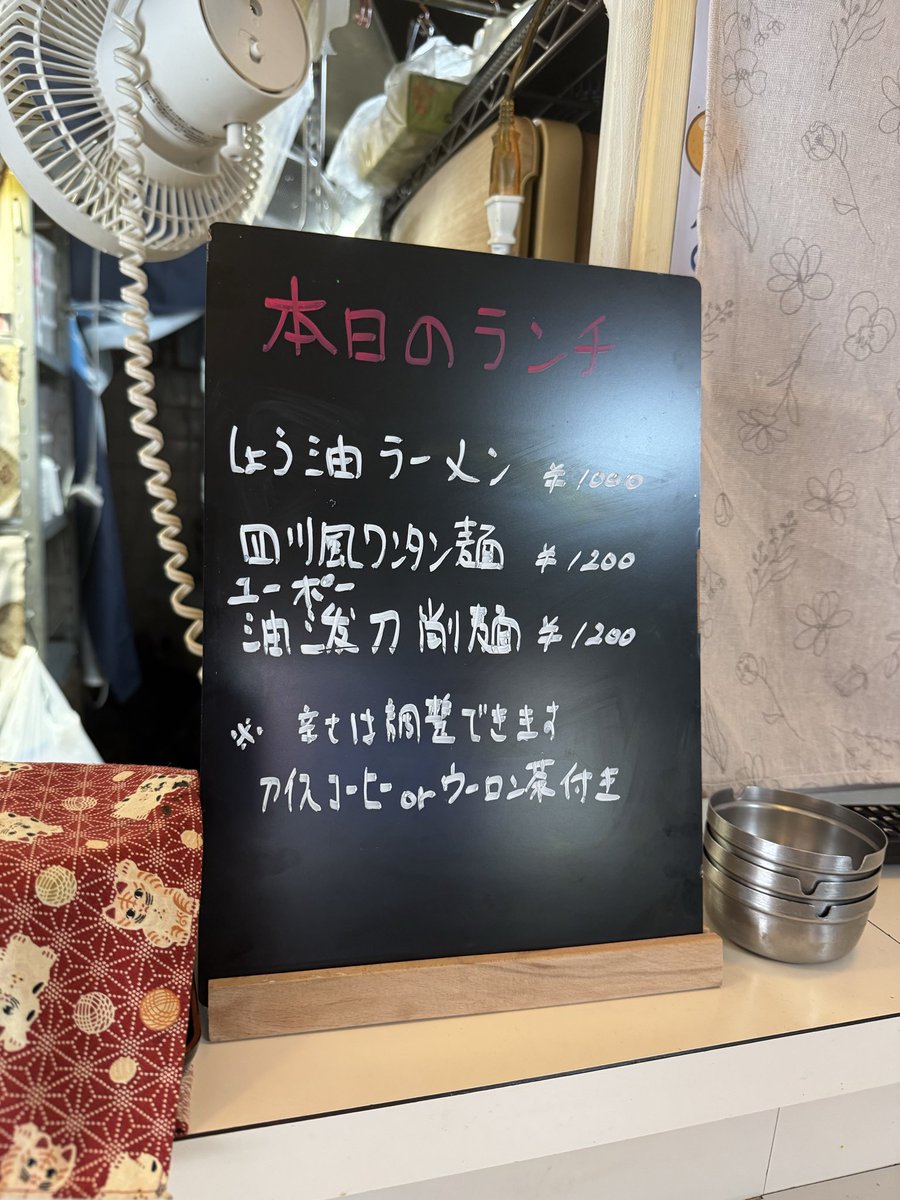 本日のランチ
しょう油ラーメン ¥1000
四川風ワンタン麺 ¥1200
ユーポー
油溌刀削麺 ¥1200
※ 辛さは調整できます
アイスコーヒー or ウーロン茶付き